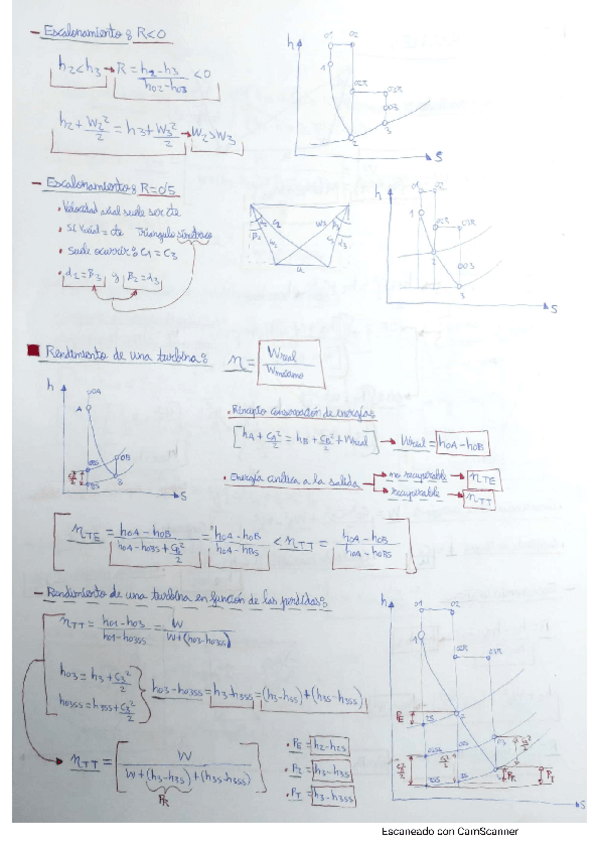 - Escalonamiento: R<0
h2<h3 → R = h2-h3 / h02-h03 <0
h2 + w2²/2 = h3 + w3²/2 → w2>w3
h
01 02
1
02R 03R
03
2
3
S
- Escalonamiento: R=0'5
• Velocidad axial suele ser cte
• Si Vaxial = cte Triángulo simétrico
• Suele ocurrir: C1 = C3
• α2 = β3 y β2 = α3
u
h
01 02
1
02R 03R
03
2
3
S
Rendimiento de una turbina: η = Wreal / Wmáximo
h
0A
A
0B
B
BS
S
• Principio conservación de energías
[hA + CA²/2 = hB + CB²/2 + Wreal] → Wreal = h0A-h0B
• Energía cinética a la salida → no recuperable → ηTE
→ recuperable → ηTT
[ηTE = h0A-h0B / h0A-h0BS + CB²/2 = h0A-h0B / h0A-hBS < ηTT = h0A-h0B / h0A-h0BS]
- Rendimiento de una turbina en función de las pérdidas:
ηTT = h01-h03 / h01-h03SS = W / W+(h03-h03SS)
h03 = h3 + C3²/2
h03SS = h3SS + C3²/2
h03-h03SS = h3-h3SS = (h3-h3S)+(h3S-h3SS)
ηTT = [W / W+(h3-h3S)+(h3S-h3SS)]
PR
• PE = h2-h2S
• PR = h3-h3S
• PT = h3-h3SS
h
01 02
1
02R 03R
PE
2S
2
03SS
03
C3²/2
3SS
3S
3
PR
PT
S
Escaneado con CamScanner